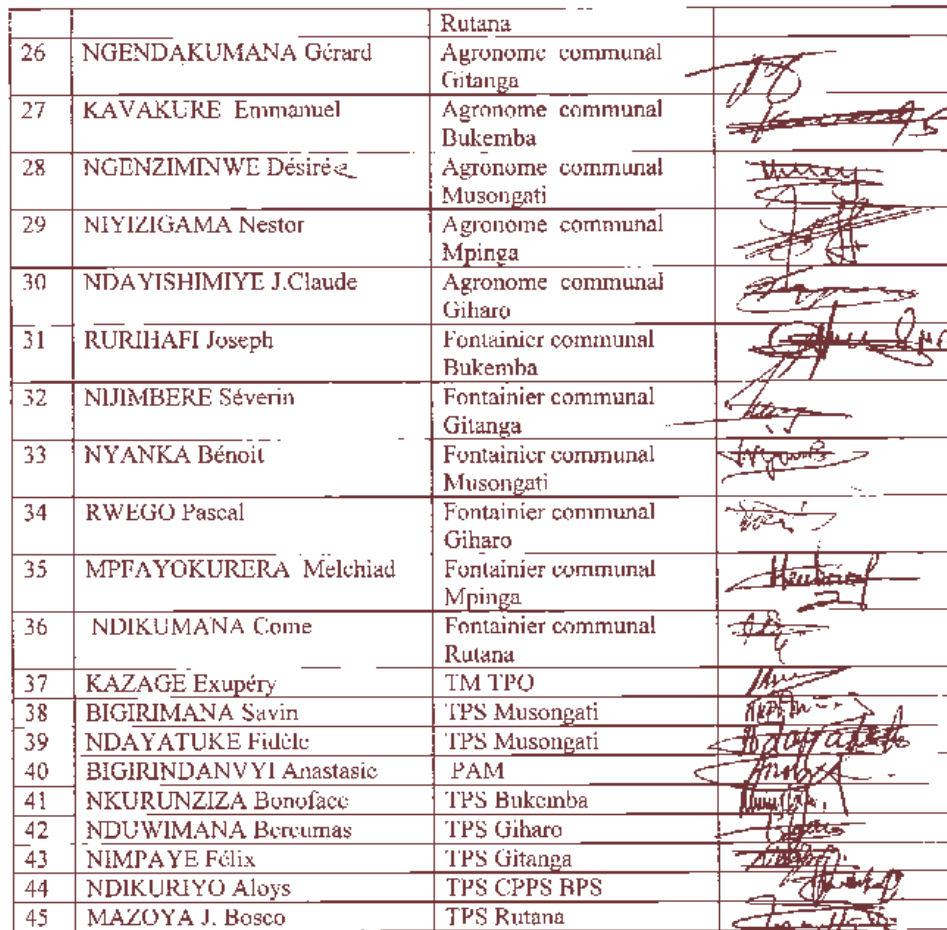 Rutana
26 NGENDAKUMANA Gérard Agronome communal
Gitanga
27 KAVAKURE Emmanuel Agronome communal
Bukemba
28 NGENZIMINWE Désirée Agronome communal
Musongati
29 NIYIZIGAMA Nestor Agronome communal
Mpinga
30 NDAYISHIMIYE J.Claude Agronome communal
Giharo
31 RURIHAFI Joseph Fontainier communal
Bukemba
32 NIJIMBERE Séverin Fontainier communal
Gitanga
33 NYANKA Bénoit Fontainier communal
Musongati
34 RWEGO Pascal Fontainier communal
Giharo
35 MPFAYOKURERA Melchiad Fontainier communal
Mpinga
36 NDIKUMANA Come Fontainier communal
Rutana
37 KAZAGE Exupéry TM TPO
38 BIGIRIMANA Savin TPS Musongati
39 NDAYATUKE Fidèle TPS Musongati
40 BIGIRINDANVYI Anastasie PAM
41 NKURUNZIZA Bonoface TPS Bukemba
42 NDUWIMANA Bercumas TPS Giharo
43 NIMPAYE Félix TPS Gitanga
44 NDIKURIYO Aloys TPS CPPS BPS
45 MAZOYA J. Bosco TPS Rutana